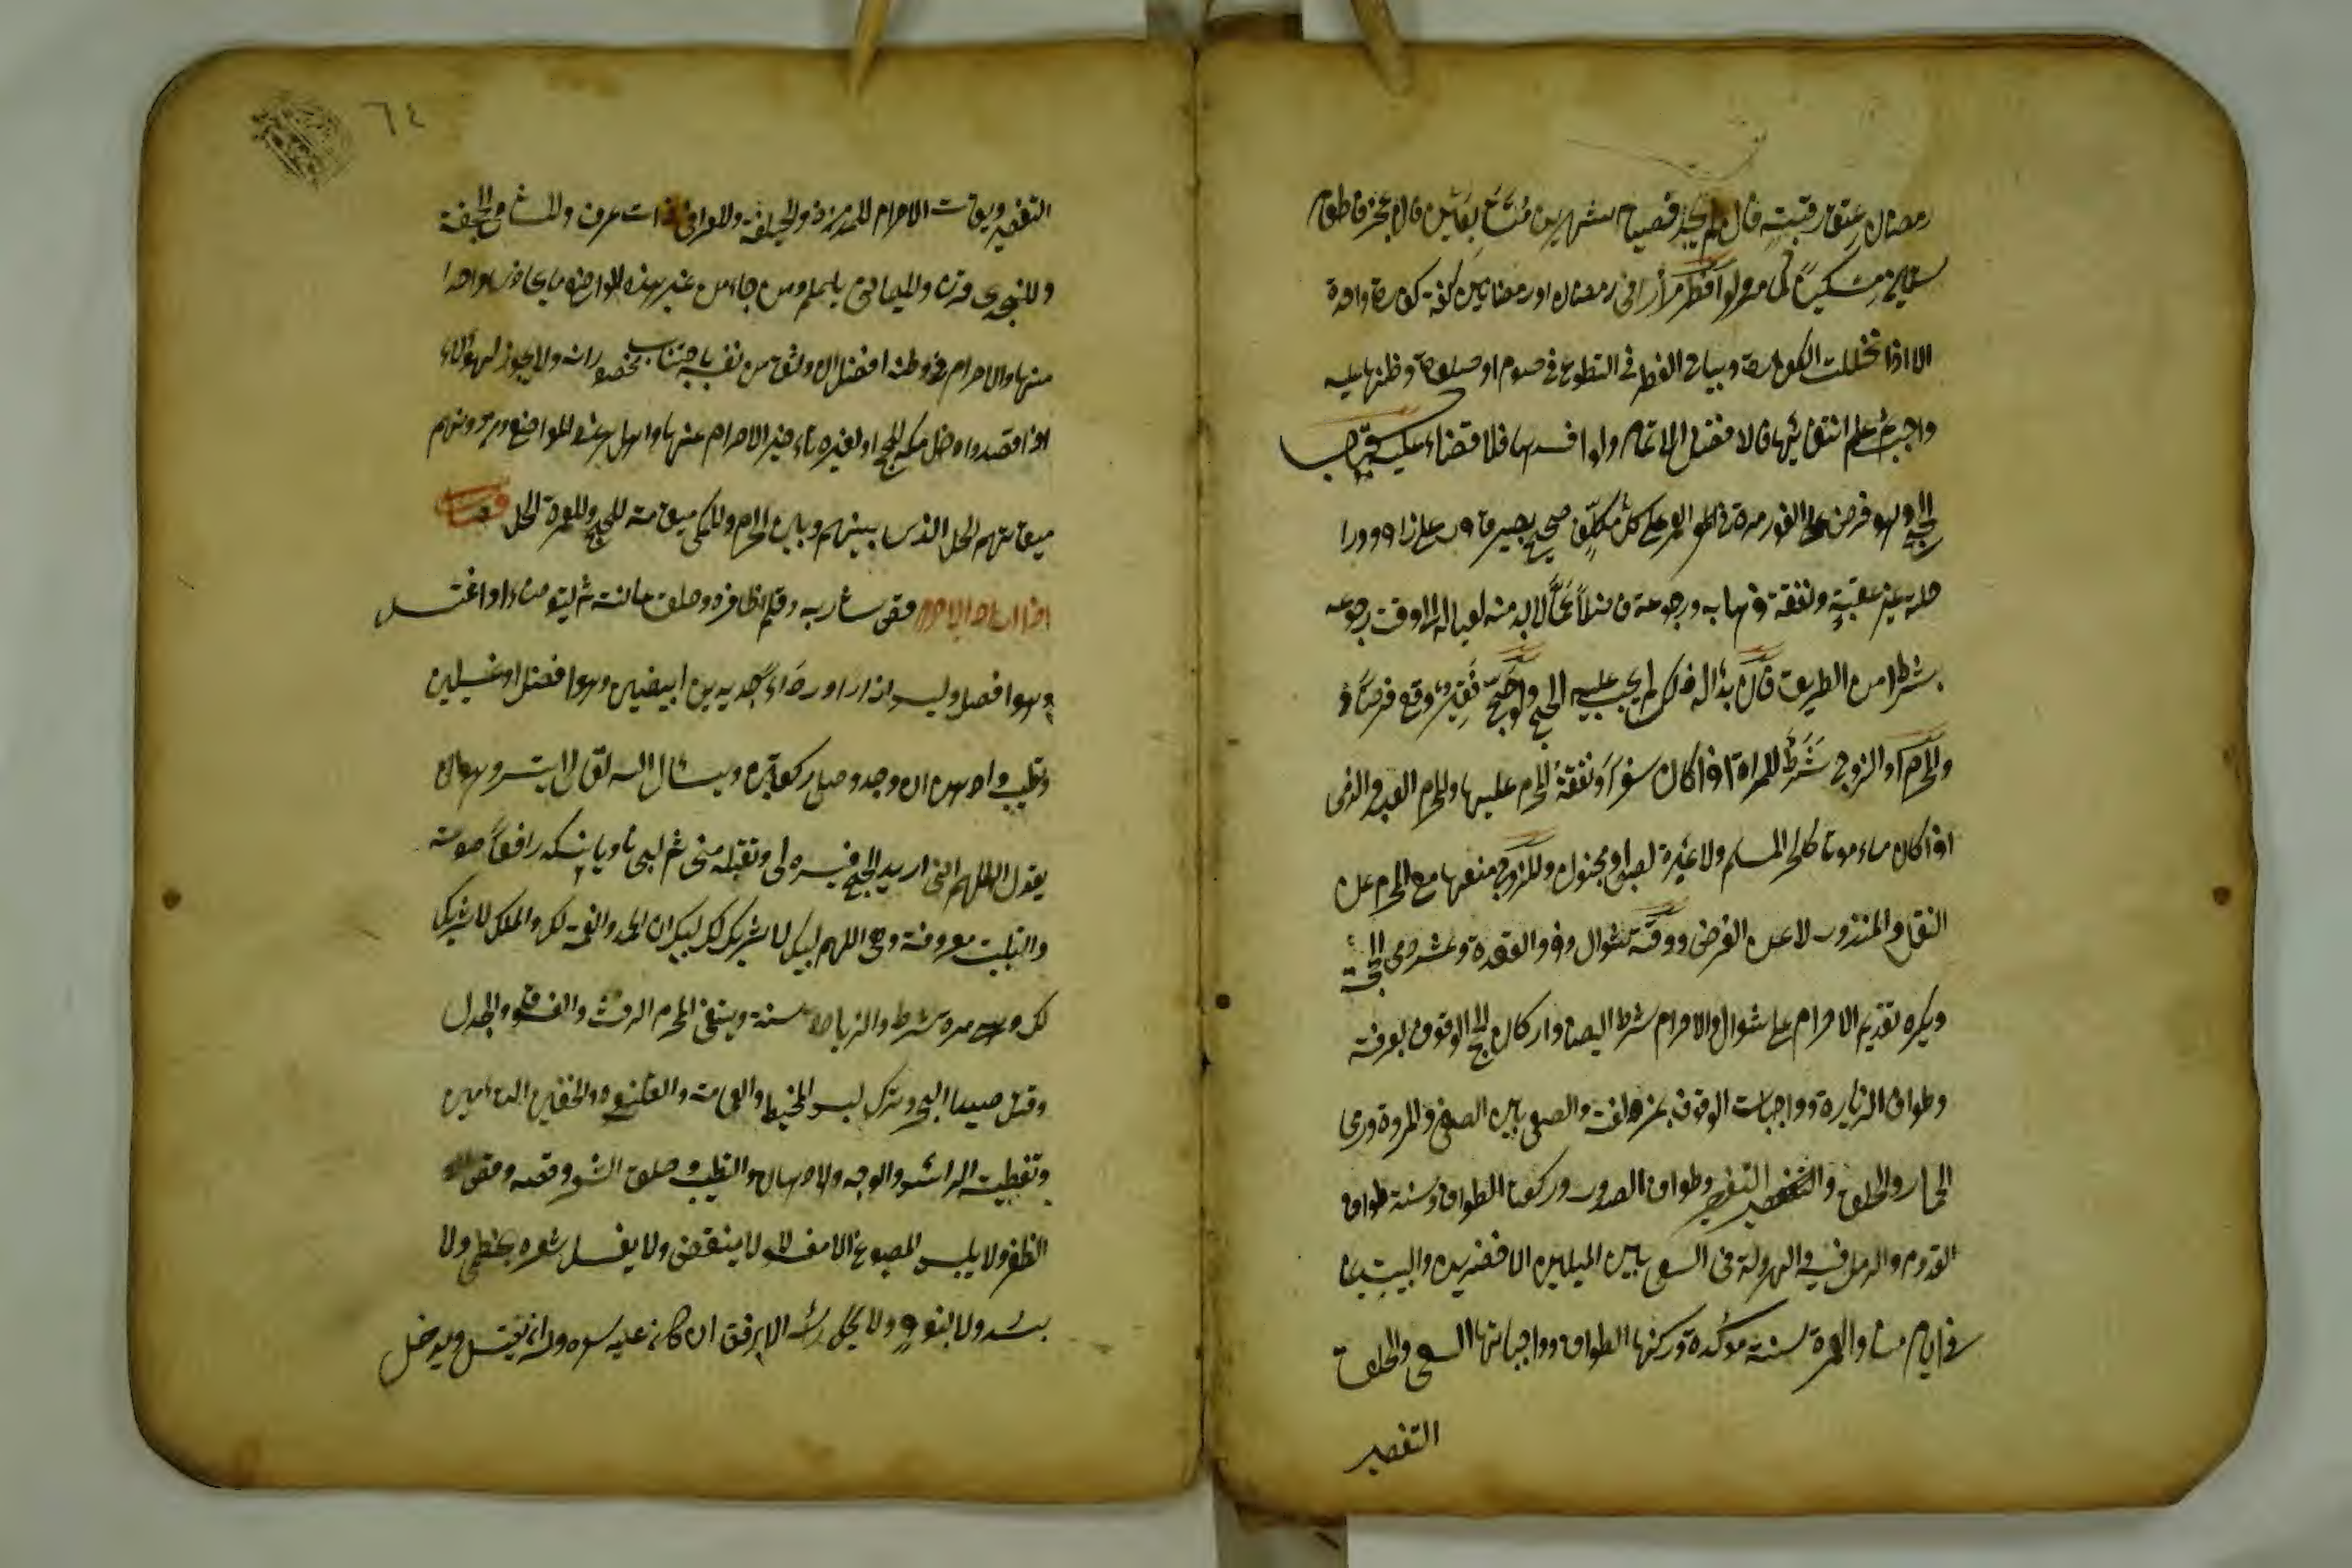 رمضان عتق رقبة فان لم يجد فصيام شهرين متتابعين فان عجز فاطعام
ستين مسكينا كما مر ولو افطر مرارا فى رمضان او رمضانين كفته كفارة واحدة
الا اذا تخللت الكفارة ويباح الفطر فى التطوع فى صوم او صلوة وظنها عليه
واجبة ثم علم انتفائها فالافضل الاتمام ولو افسدها فلا قضاء عليه كتاب
الحج وهو فرض على الفور مرة فى العمر على كل مكلف صحيح بصير قادر على زاد ورا
حلة غير عقبة ونفقة ذهابه ورجوعه فاضلا عما لابد منه لعياله الى وقت رجوعه
بشرط امن الطريق فان بذل له ذلك لم يجب عليه الحج ولو حج فقير وقع فرضا و
والمحرم او الزوج شرط للمراة اذا كان سفرا ونفقة المحرم عليها والمحرم العبد والذمى
اذا كان مامونا كالحر المسلم ولا عبرة لصبى ومجنون وللزوج منعها مع المحرم عن
النفل والمنذور لا عن الفرض ووقته شوال وذو القعدة وعشر ذى الحجة
ويكره تقديم الاحرام على شوال والاحرام شرط ايضا واركان الحج الوقوف بعرفة
وطواف الزيارة وواجباته الوقوف بمزدلفة والسعى بين الصفى والمروة ورمى
الجمار والحلق والتقصير وطواف الصدر وركعتا الطواف وسنته طواف
القدوم والرمل فيه والهرولة فى السعى بين الميلين الاخضرين والمبيت بمنا
فى ايام منا والعمرة سنة مؤكدة وركنها الطواف وواجباتها السعى والحلق
التقصير
٦٤
التقصير وميقات الاحرام للمدنى ذو الحليفة وللعراقى ذات عرق وللشامى الجحفة
وللنجدى قرن ولليمانى يلملم ومن جاء من غير هذه المواضع ما يحاذى واحدا
منها والاحرام من وطنه افضل ان وثق من نفسه باجتناب محضوراته ولا يجوز لهؤلاء
اذا قصدوا دخل مكة للحج او لغيره تاخير الاحرام عنها واهل هذه المواضع ومن دونهم
ميقاتهم الحل الذى بينهم وبين الحرم وللمكى ميقاته للحج الحرم وللعمرة الحل فصل
اذا اراد الاحرام قص شاربه وقلم اظافره وحلق عانته ثم ليتوضاء او اغتسل
وهو افضل ولبس ازار ورداء جديدين ابيضين وهو افضل او غسيلين
وتطيب وادهن ان وجد وصلى ركعتين ويسئال الله تعالى التيسر وهو ان
يقول اللهم انى اريد الحج فيسره لى وتقبله منى ثم لبى ناويا نسكه رافعا صوته
والتلبية معروفة وهى اللهم لبيك لا شريك لك لبيك ان الحمد والنعمة لك والملك لا شريك
لك مرة شرط والزيادة سنة ويتقى المحرم الرفث والفسق والجدل
وقتل صيد البر وترك لبس المخيط والعمامة والقلنسوة والخفين
وتغطية الراس والوجه والادهان والتطيب وحلق الشعر وقصه وقص
الظفر ولا يلبس المصبوغ الا مغسولا لا ينقض ولا يغسل شعره بخطمى ولا
بسدر ولا ولا يحك راسه الا برفق ان كان عليه شعر وله ان يغتسل ويدخل